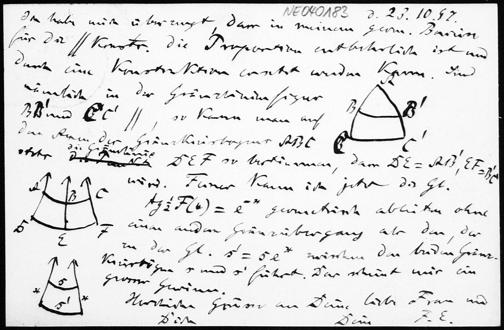 NE040183
d. 23.10.47.
Ich habe mich überzeugt, dass in meinem geom. Beweise
für die // Konstr. die Proportion entbehrlich ist und
durch eine Konstruktion ersetzt werden kann. Sind
nämlich in der Grenzlinienfigur
BB' und CC' //, so kann man auf
den Arm der Grenzkreisbogen ABC
stets die Grenzlinie DEF so bestimmen, dass DE = AB', EF = B'C'
wird. Ferner kann ich jetzt die Gl.
tg ½ F(x) = e⁻ˣ geometrisch ableiten ohne
einen andern Grenzübergang als den, der
zu der Gl. s' = s eˣ zwischen den beiden Grenz-
kreisbögen s und s' führt. Das scheint mir ein
grosser Gewinn.
Herzliche Grüsse an Deine liebe Frau und
Dich Dein F. E.
A
B B'
C C'
A B C
D E F
s
x s' x